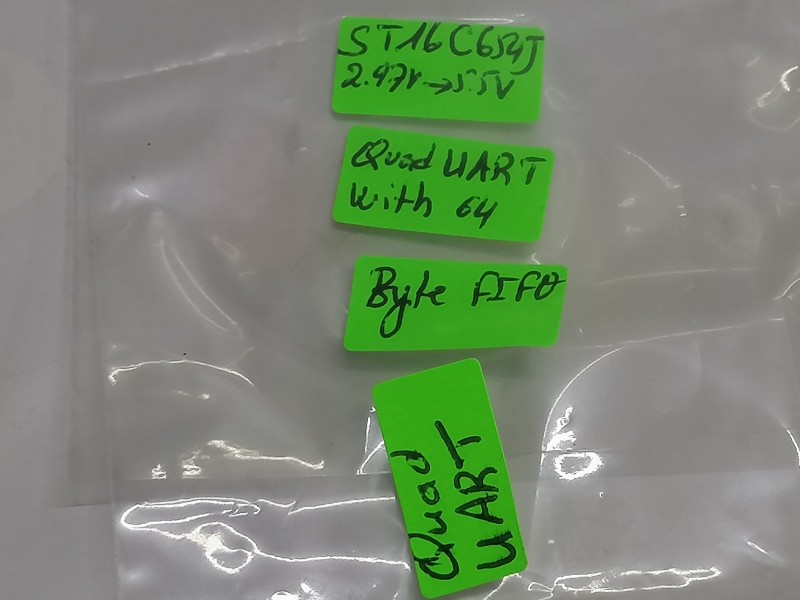 ST16C654J
2.97V→5.5V
Quad UART
With 64
Byte FIFO
Quad
UART